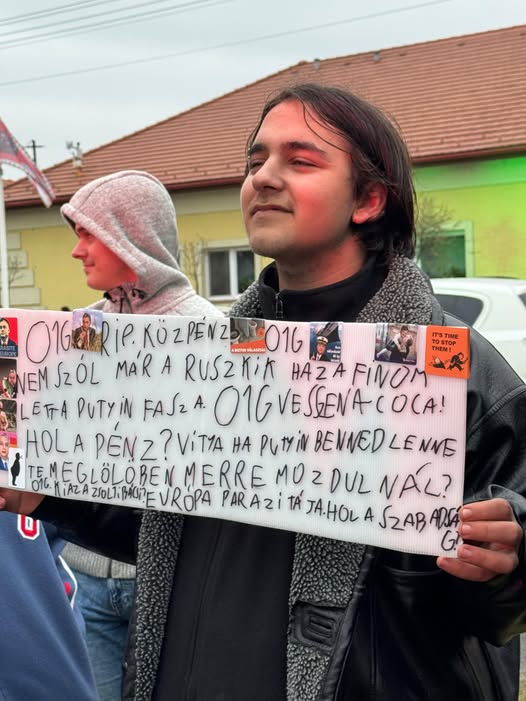 O1G RIP. KÖZPÉNZ O1G
NEM SZÓL MÁR A RUSZKIK HAZA FINOM
LETT A PUTYIN FASZA. O1G VESSEN A COCA!
HOL A PÉNZ? VITYA HA PUTYIN BENNED LENNE
TE MEGLÖLÖBEN MERRE MOZDULNÁL?
O1G. KI AZ A ZSOLTI BÁCSI? EURÓPA PARAZITÁJA. HOL A SZABADSÁ
G?
IT'S TIME
TO STOP
THEM!